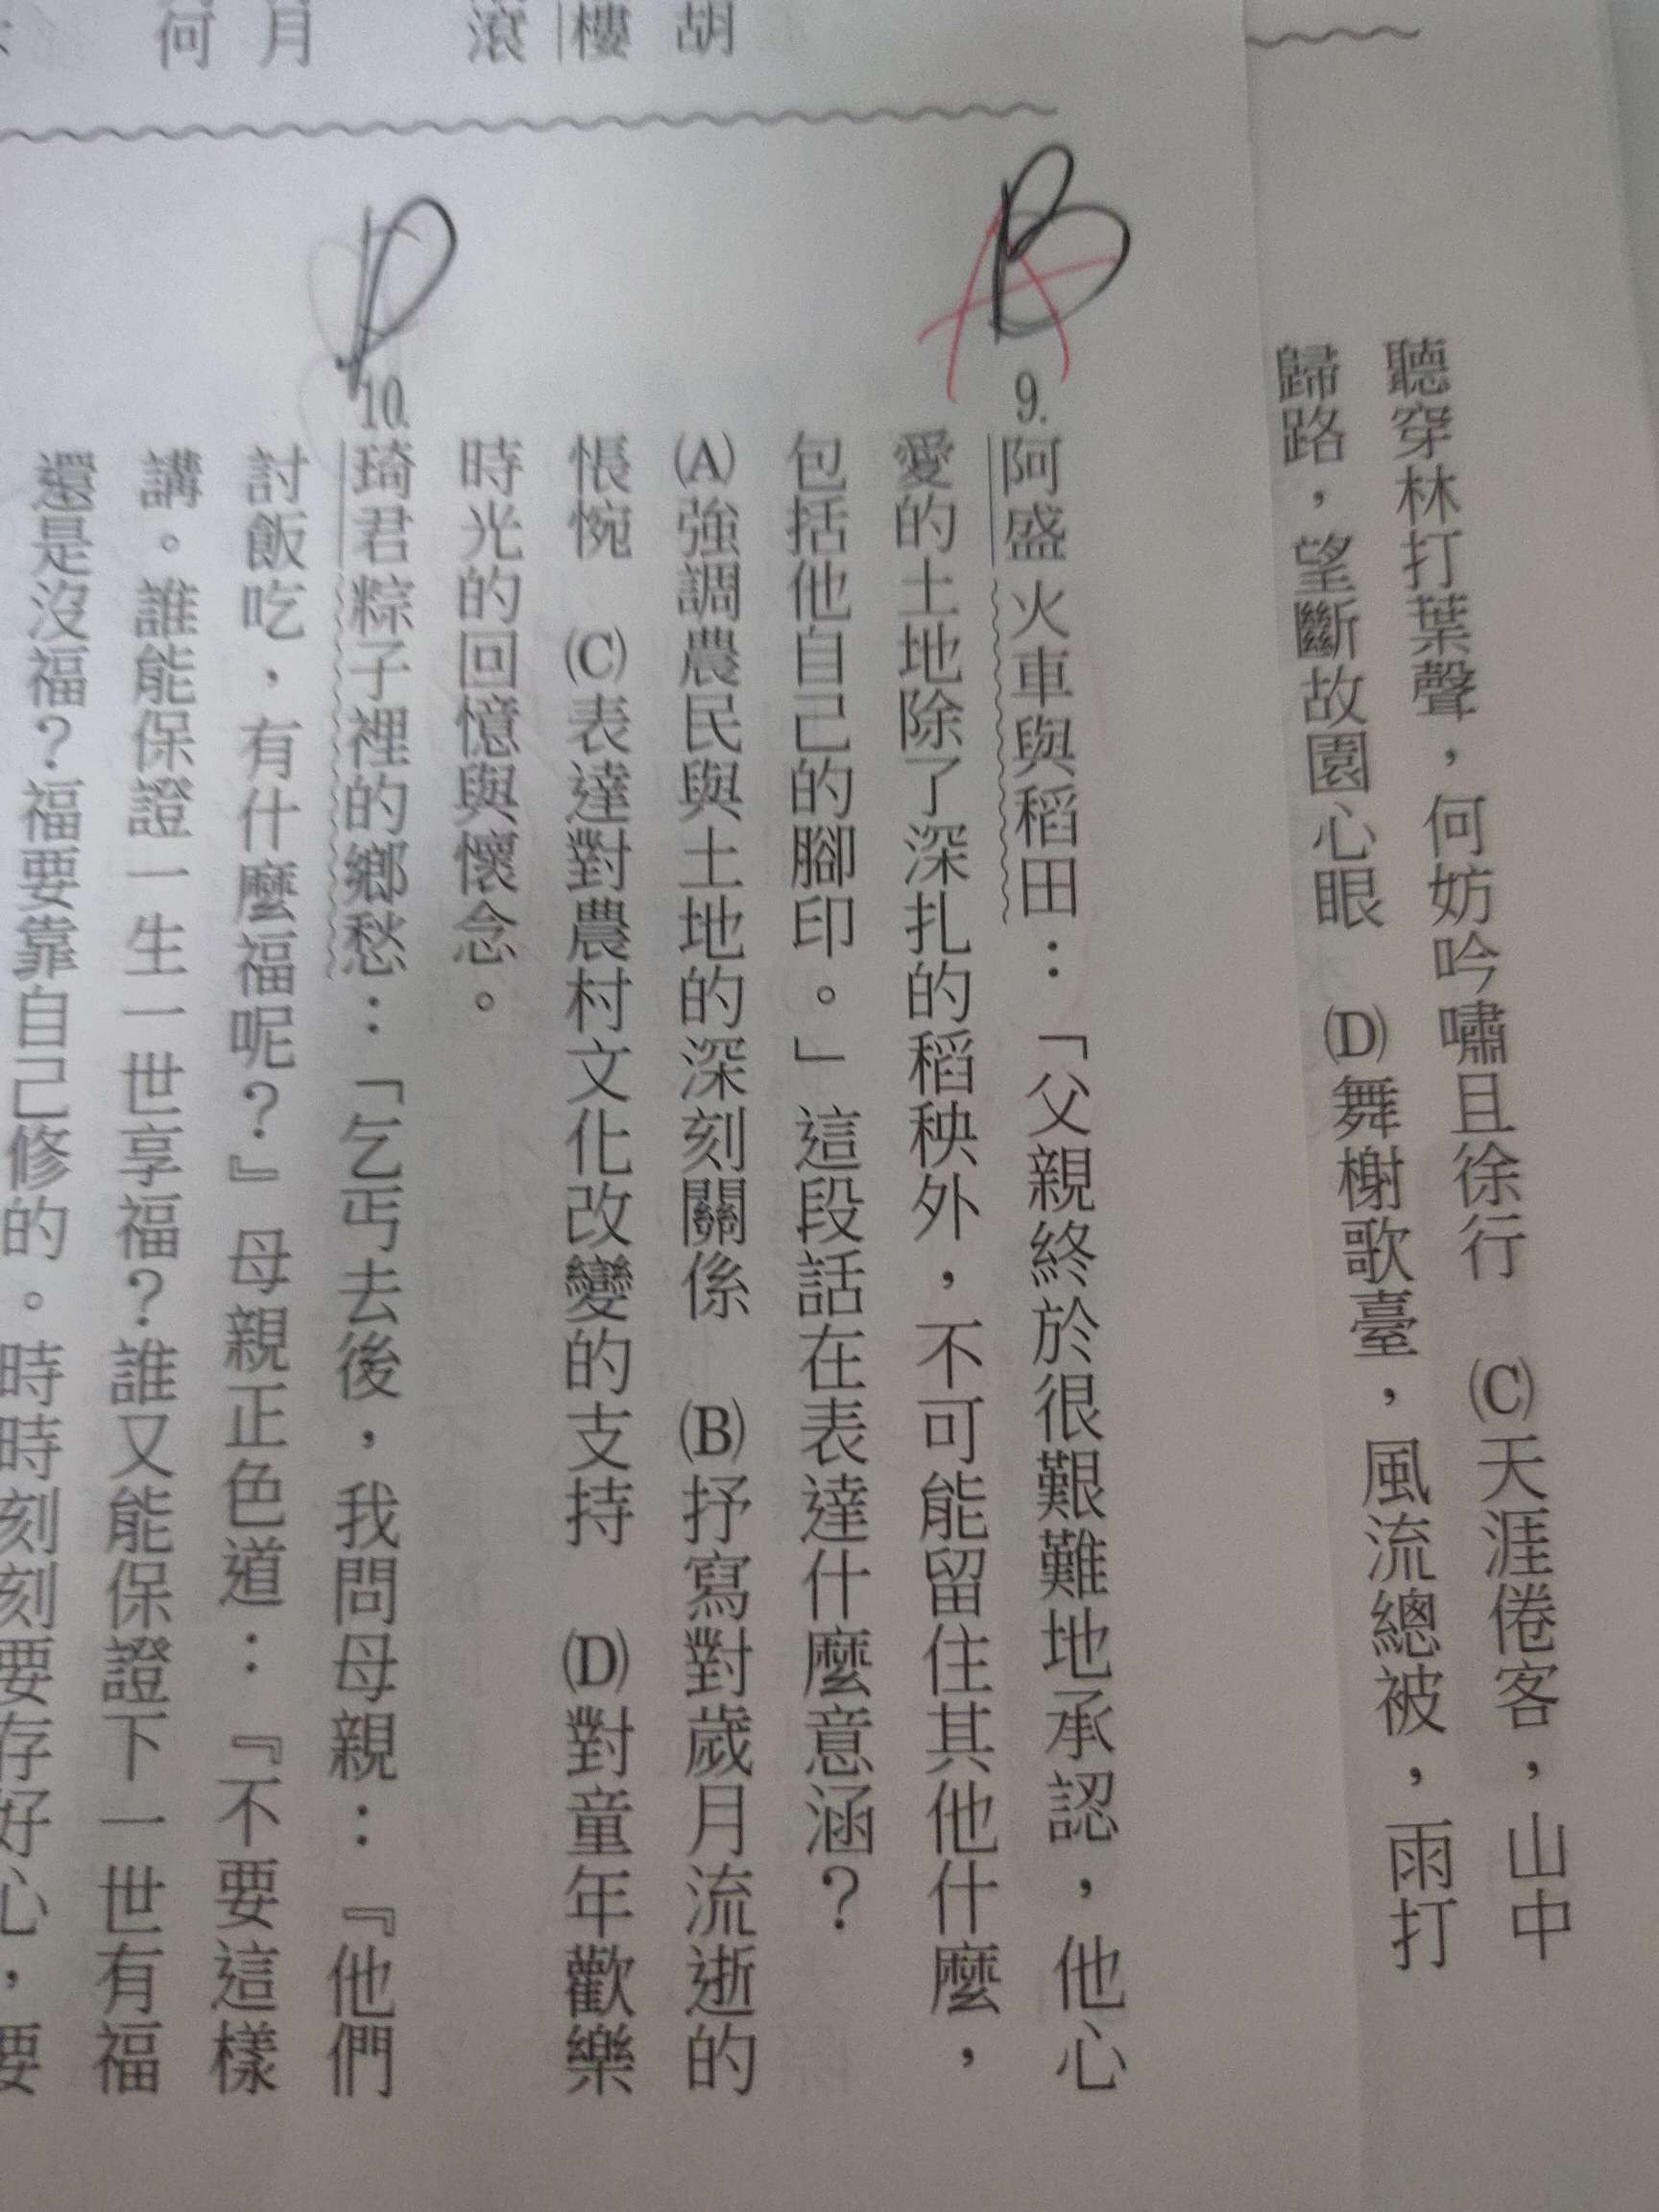 胡
樓
滾
月
何
聽穿林打葉聲，何妨吟嘯且徐行　(C)天涯倦客，山中
歸路，望斷故園心眼　(D)舞榭歌臺，風流總被，雨打
B
A
9.阿盛火車與稻田：「父親終於很艱難地承認，他心
愛的土地除了深扎的稻秧外，不可能留住其他什麼，
包括他自己的腳印。」這段話在表達什麼意涵？
(A)強調農民與土地的深刻關係　(B)抒寫對歲月流逝的
悵惋　(C)表達對農村文化改變的支持　(D)對童年歡樂
時光的回憶與懷念。
D
10.琦君粽子裡的鄉愁：「乞丐去後，我問母親：『他們
討飯吃，有什麼福呢？』母親正色道：『不要這樣
講。誰能保證一生一世享福？誰又能保證下一世有福
還是沒福？福要靠自己修的。時時刻刻要存好心，要